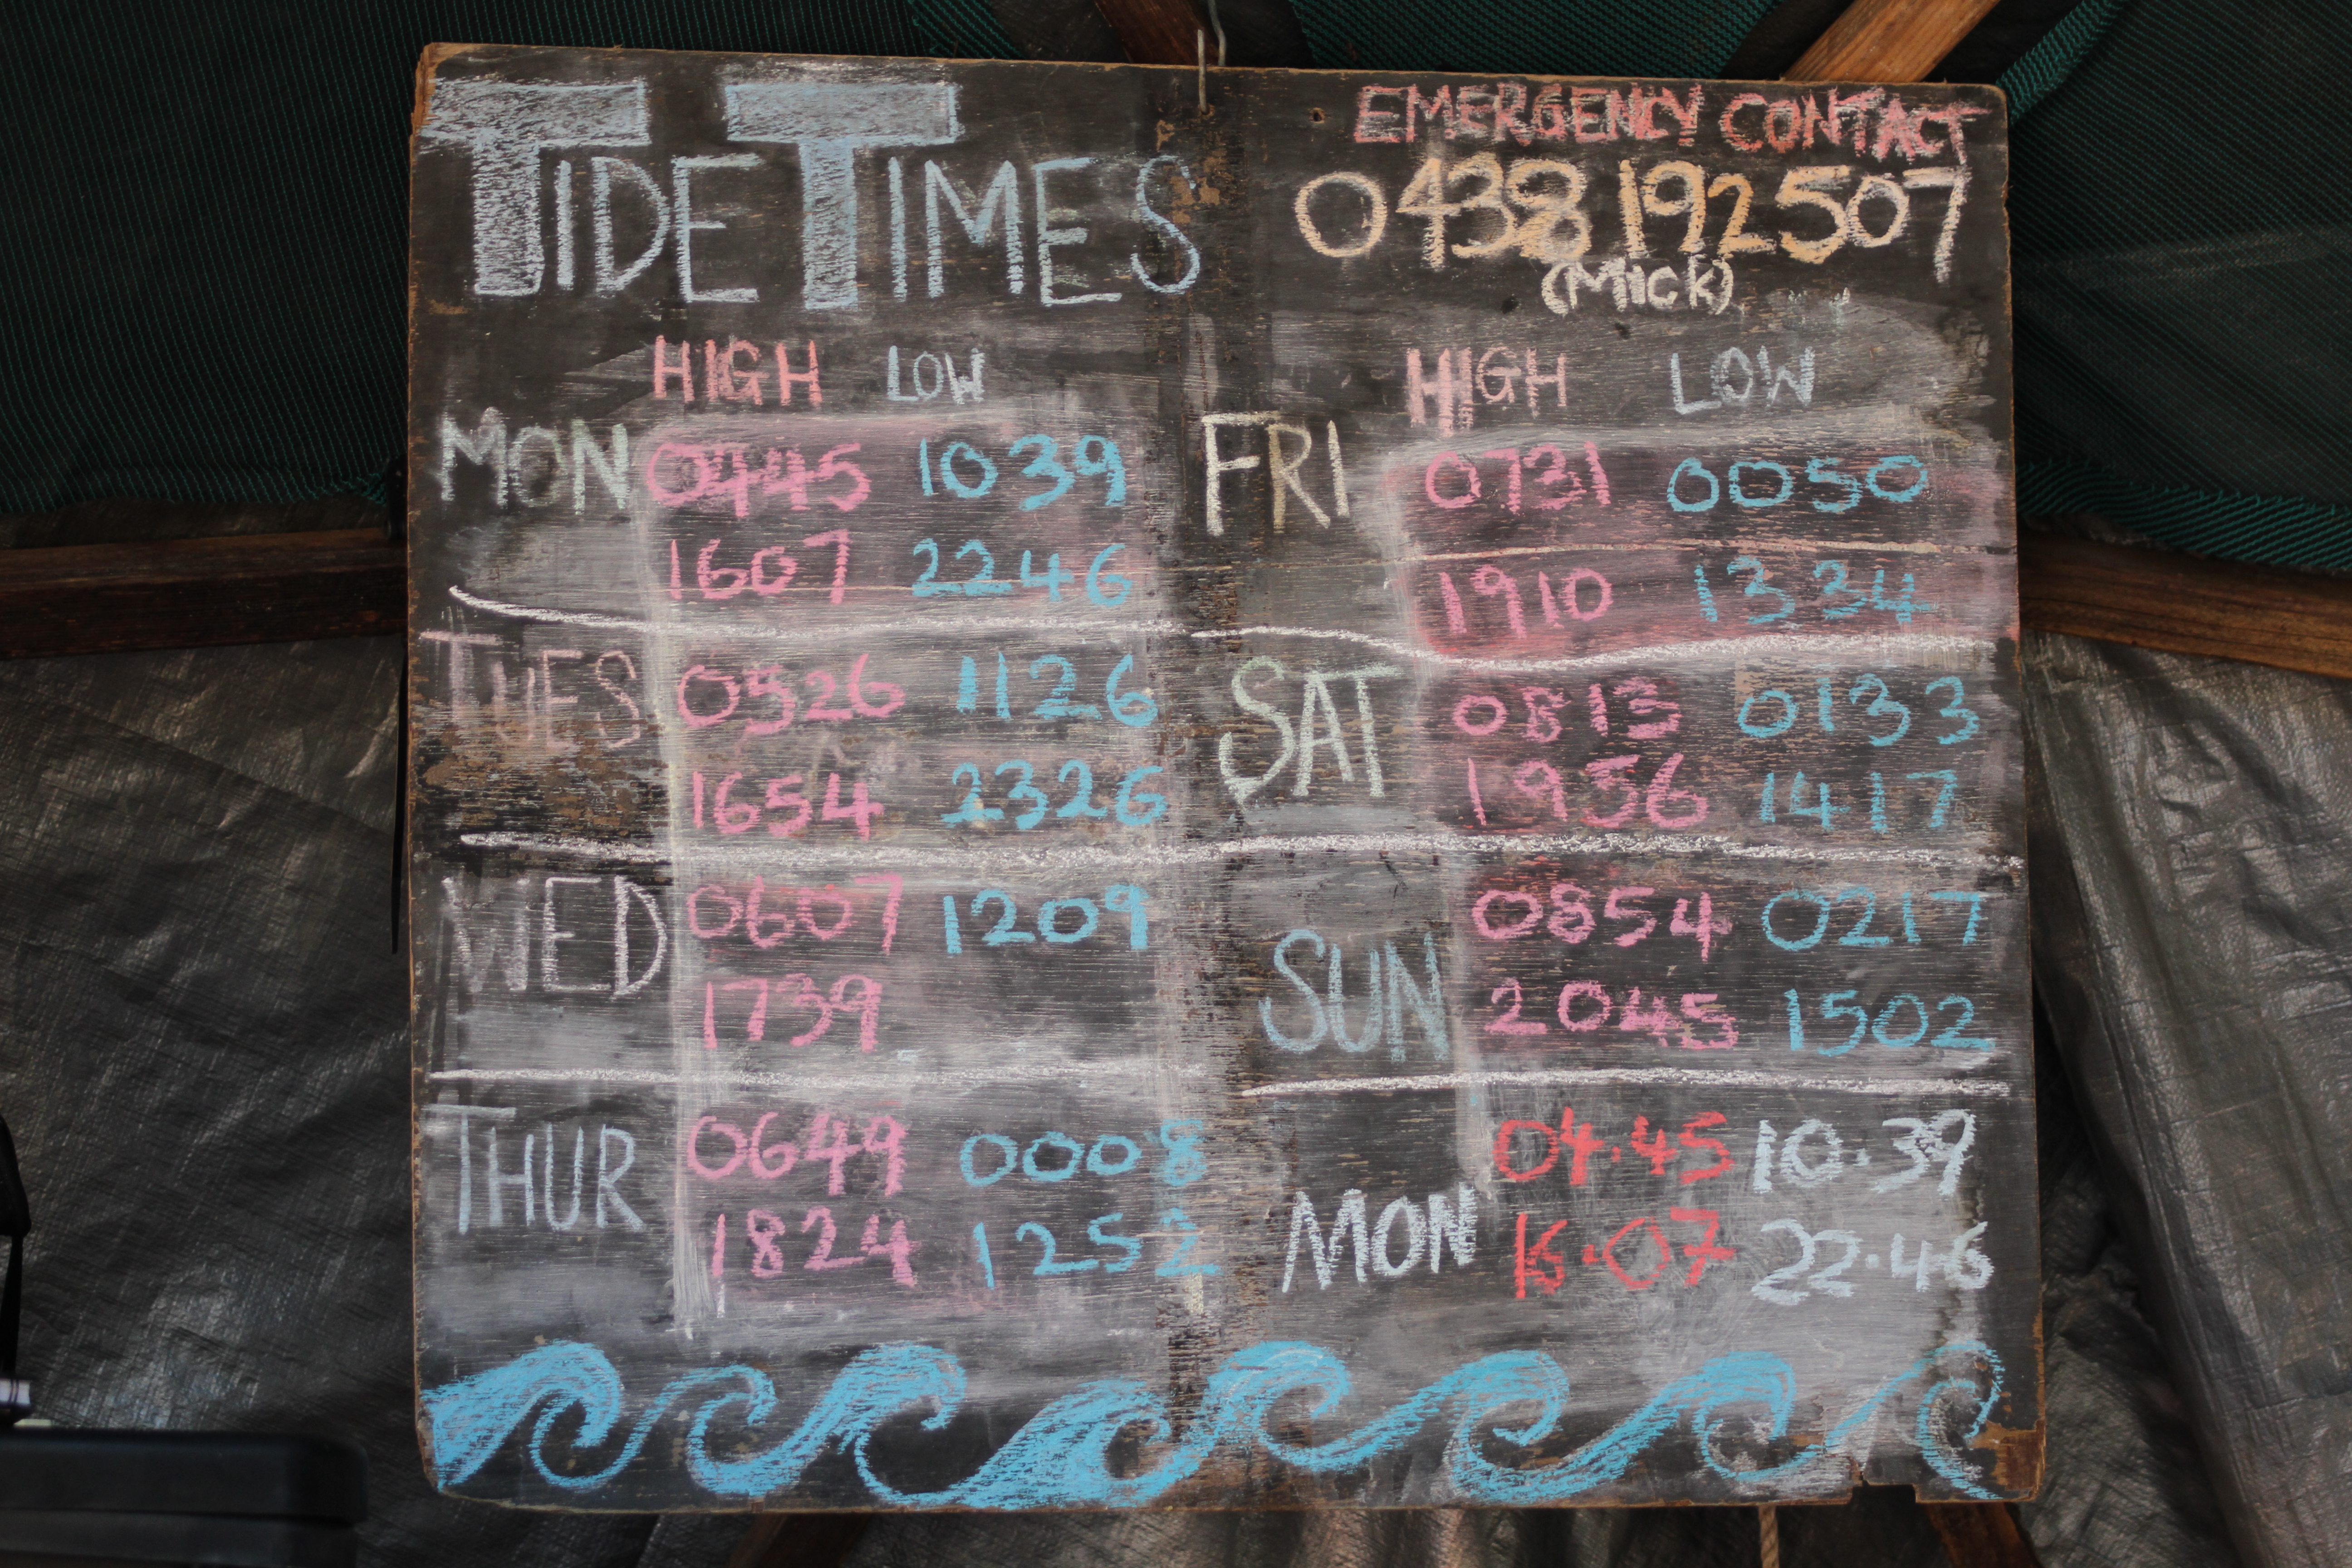 TIDE TIMES
HIGH LOW
MON 0445 1039
1607 2246
TUES 0526 1126
1654 2326
WED 0607 1209
1739
THUR 0649 0008
1824 1252
EMERGENCY CONTACT
0438 192507
(Mick)
HIGH LOW
FRI 0731 0050
1910 1334
SAT 0813 0133
1956 1417
SUN 0854 0217
2045 1502
MON 04.45 10.39
16.07 22.46